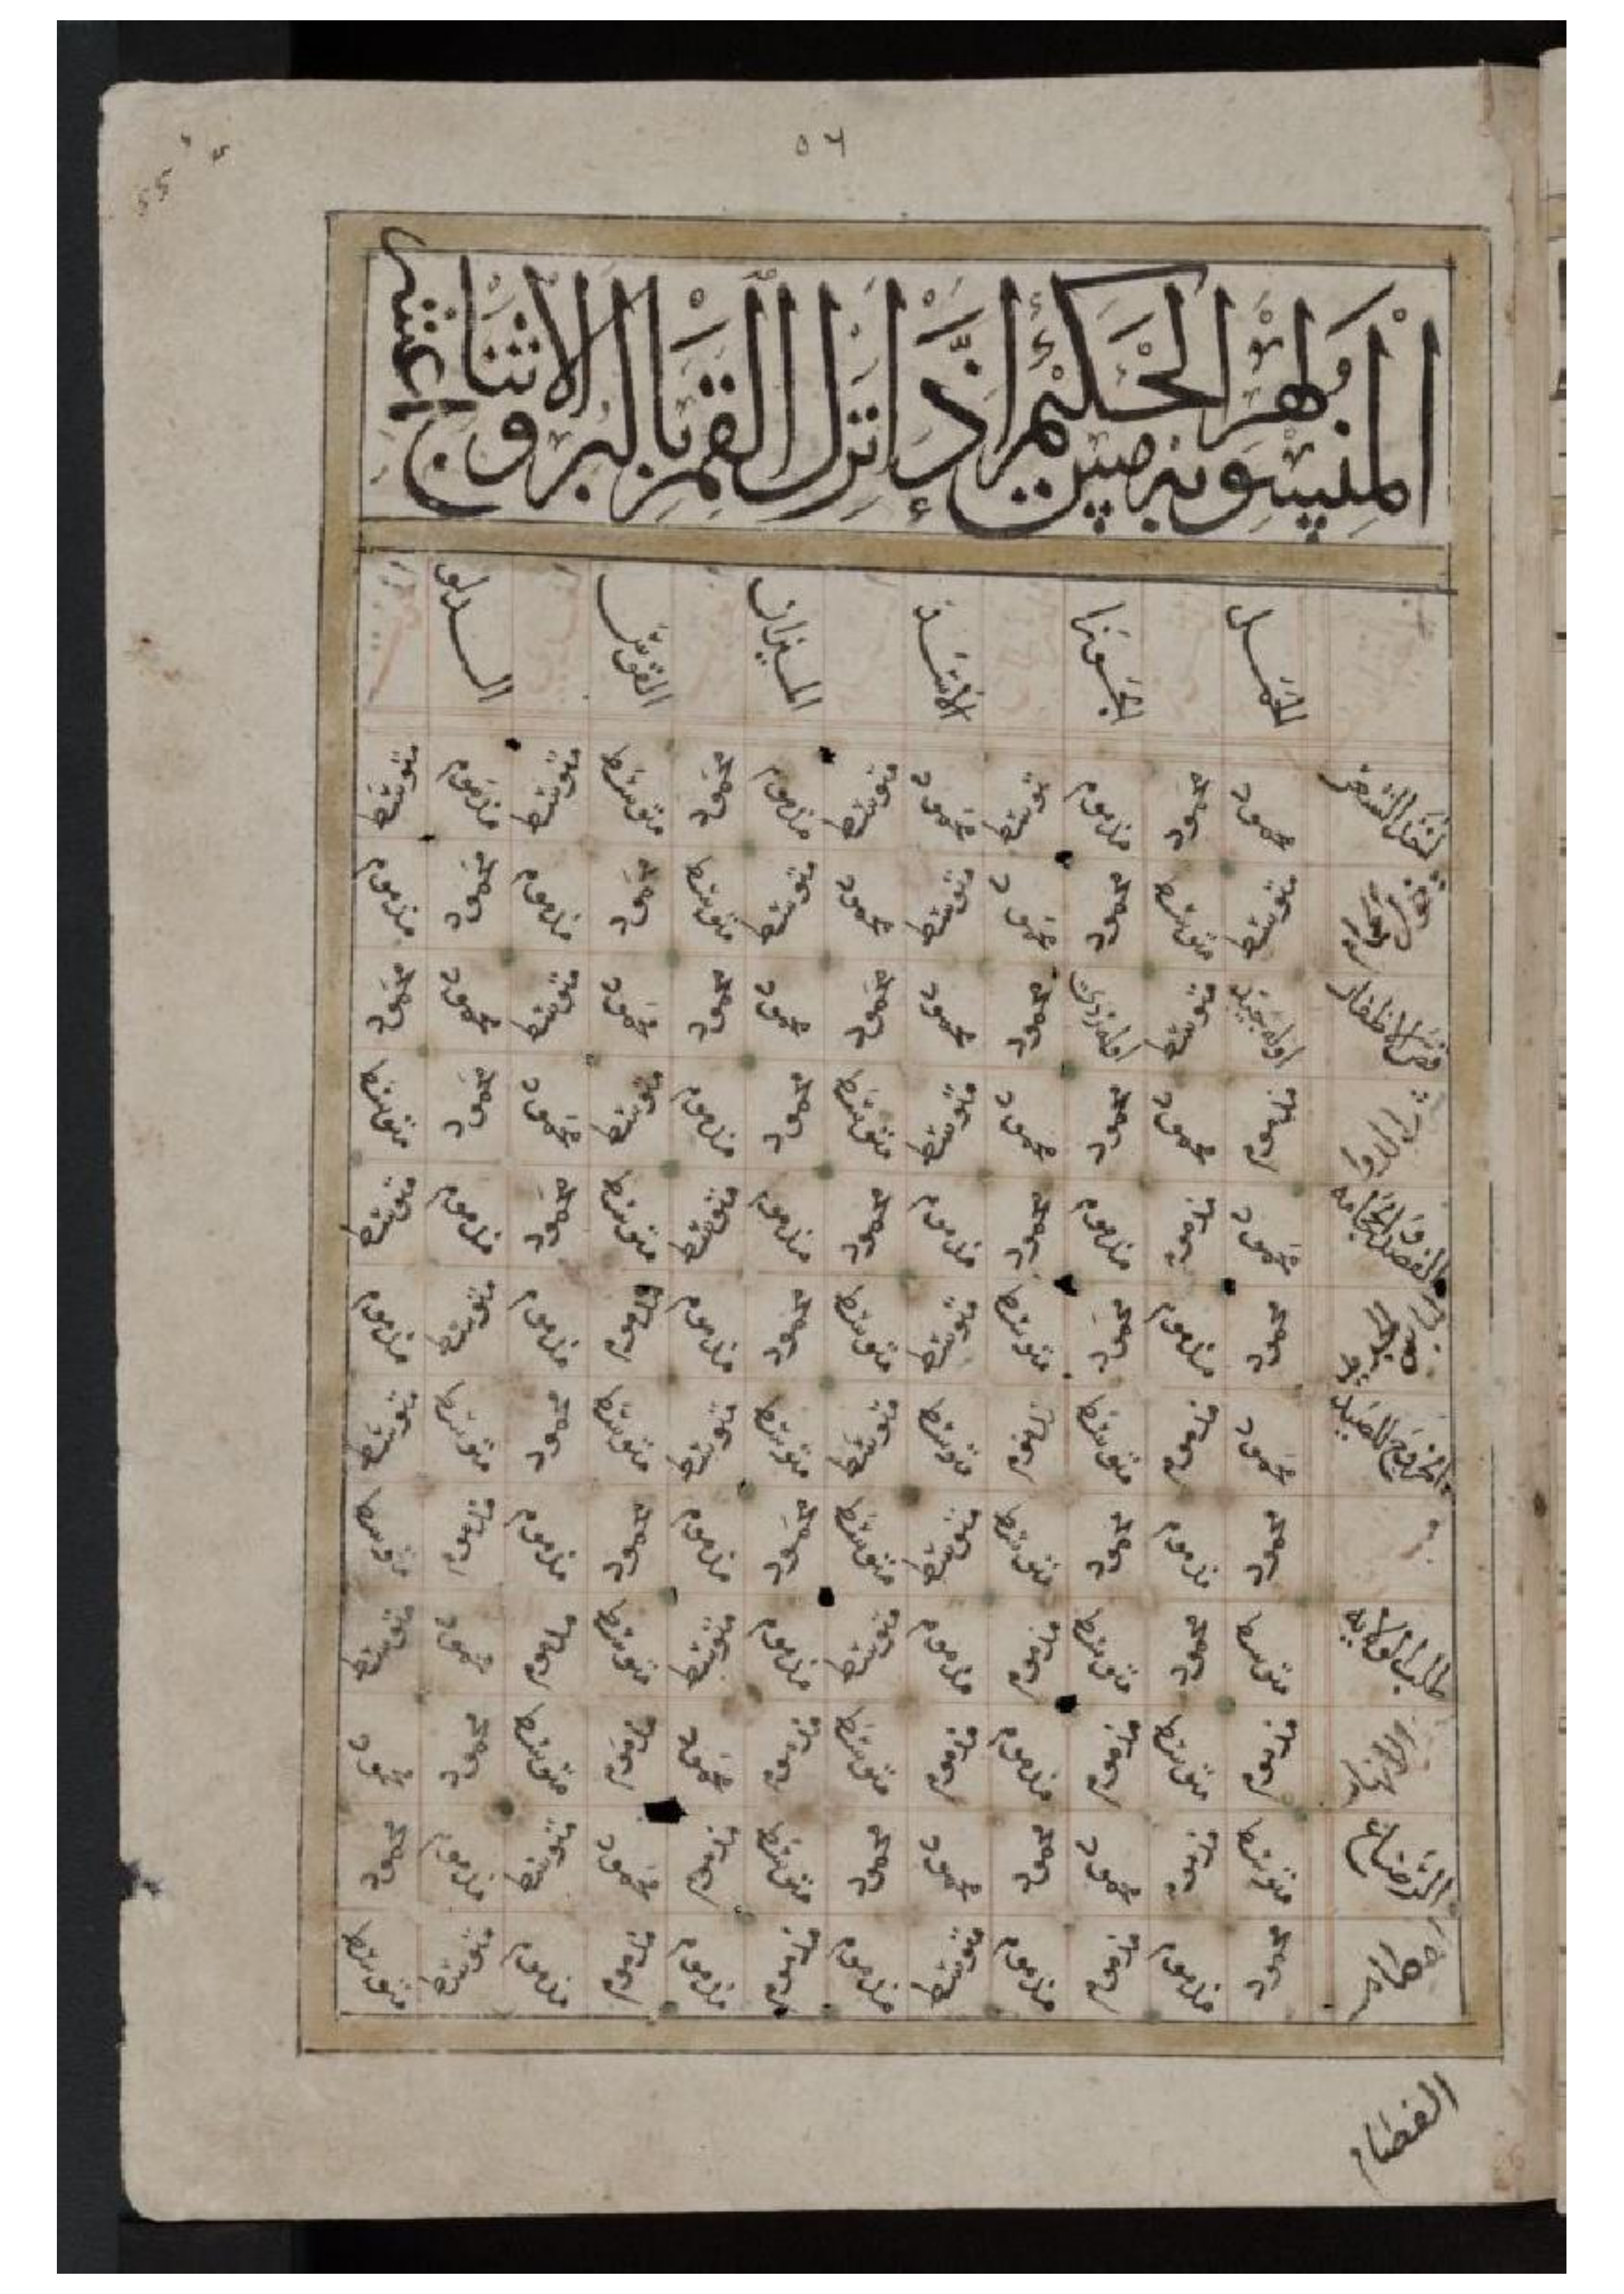 ٥٦
المنسوبة لهرمز الحكيم إذا نزل القمر بالبروج الاثنا عشر
الحمل الجوزا الأسد الميزان القوس الدلو
السفر محمود محمود مذموم متوسط محمود متوسط مذموم محمود متوسط متوسط مذموم متوسط
دخول الحمام متوسط متوسط محمود محمود متوسط محمود متوسط متوسط محمود مذموم محمود مذموم
قص الاظفار اوله جيد متوسط اوله ردي محمود محمود محمود محمود محمود محمود متوسط محمود محمود
شرب الدوا مذموم محمود محمود محمود متوسط متوسط محمود مذموم متوسط محمود محمود متوسط
الفصد والحجامه محمود مذموم مذموم محمود مذموم محمود مذموم متوسط متوسط محمود مذموم متوسط
لباس الجديد محمود مذموم محمود متوسط متوسط متوسط محمود مذموم مذموم مذموم متوسط مذموم
الخروج للصيد محمود مذموم متوسط مذموم متوسط متوسط متوسط متوسط متوسط محمود متوسط متوسط
محمود مذموم محمود متوسط متوسط متوسط محمود مذموم محمود مذموم مذموم متوسط
طلب الولايه متوسط محمود متوسط مذموم مذموم متوسط مذموم متوسط متوسط مذموم محمود متوسط
مذموم متوسط مذموم مذموم مذموم متوسط مذموم محمود مذموم متوسط محمود محمود
الرضاع متوسط مذموم محمود محمود محمود محمود متوسط مذموم محمود متوسط مذموم محمود
محمود مذموم مذموم مذموم متوسط مذموم مذموم مذموم مذموم مذموم متوسط متوسط
الفصام